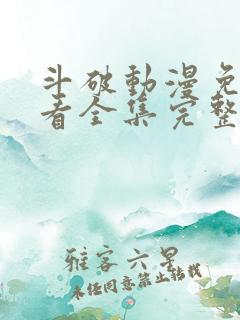 斗破動漫免
看全集完整
雅客六呈
未经同意禁止转载